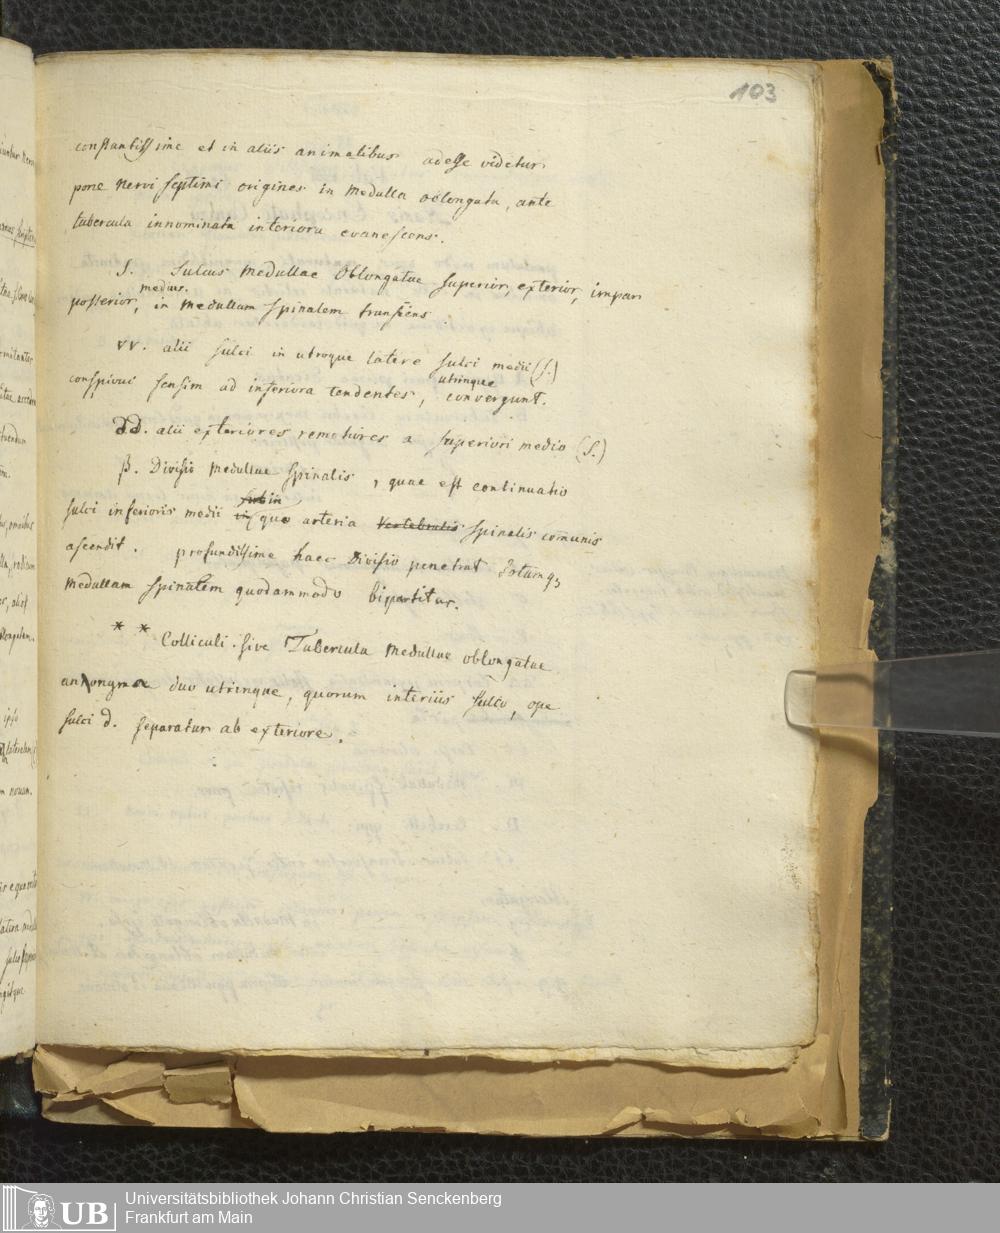 103
constantissime et in aliis animalibus adesse videtur
pone Nervi septimi origines in Medulla oblongata, ante
tubercula innominata interiora evanescens.
S. Sulcus Medullae Oblongatae superior, exterior, impar
medius.
posterior, in Medullam spinalem transiens
vv. alii sulci in utroque latere sulci medii (S.)
utrinque
conspicui sensim ad inferiora tendentes, convergunt.
dd. alii exteriores remotiores a superiori medio (S.)
β. Divisio Medullae Spinalis, quae est continuatio
sulci inferioris medii in quo arteria vertebralis spinalis communis
ascendit. profundissime haec Divisio penetrat totamq,
Medullam spinalem quodammodo bipartitur.
* * Colliculi sive Tubercula Medullae oblongatae
duo utrinque, quorum interius sulco, ope
sulci d. separatur ab exteriore.
Universitätsbibliothek Johann Christian Senckenberg
Frankfurt am Main
UB